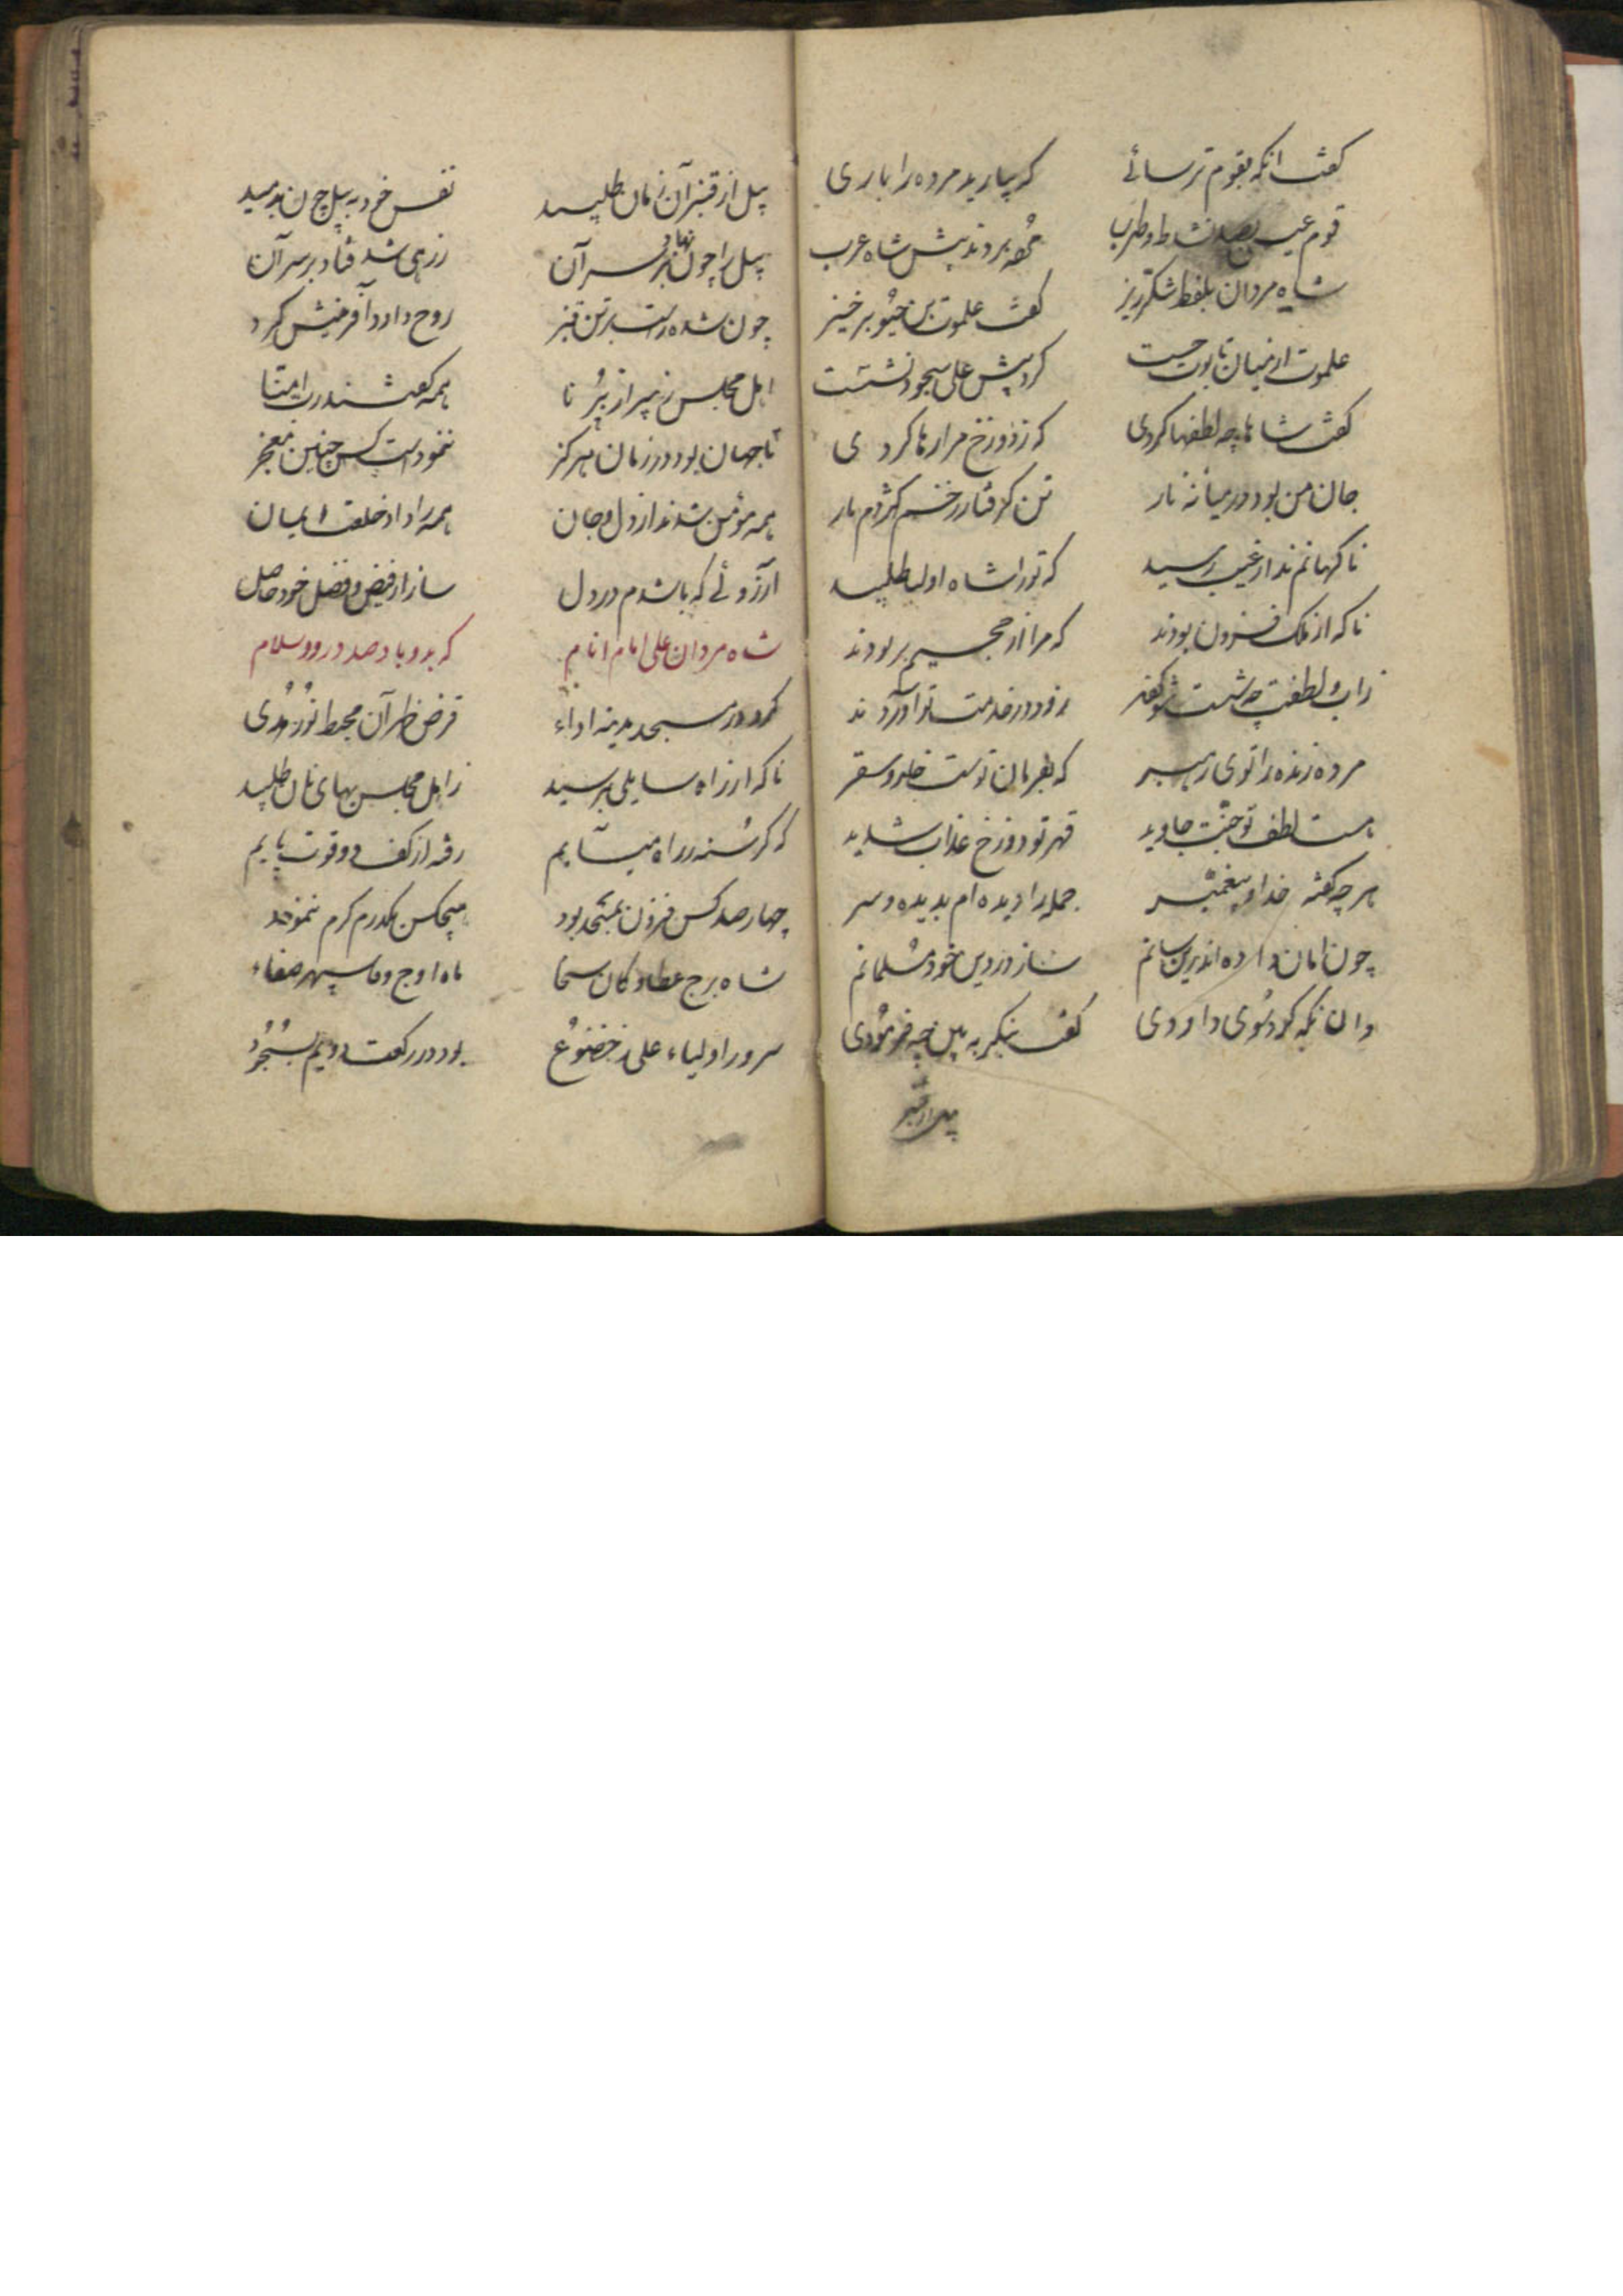 گفت انکه بقوم ترسائے که بیارید مرده را باری
قوم عیسی بصد نشاط و طرب مهد بردند پیش شاه عرب
شاه مردان بلفظ شکرریز گفت علموت بن برخیز
علموت از میان تابوت جست کرد پیش علی سجود نشست
گفت شاها چه لطفها کردی که ز دوزخ مرا رها کردی
جان من بود در میانه نار تن گرفتار زخم کژدم مار
ناکهانم ندا از غیب رسید که تو را شاه اولیا طلبید
ناکه از ملک فزون بودند که مرا از جحیم بربودند
زاب لطفت چه شست زود در خدمت تو آوردند
مرده زنده را توی رهبر که بفرمان توست خلد و سقر
هست لطف تو جنت جاوید قهر تو دوزخ عذاب شدید
هر چه گفته خدا و پیغمبر جمله را دیده ام بدیده و سر
چون امان داده اند یرسانم ساز در دین خود مسلمانم
وان نکه کرد سوی داودی گفت بنگر به بیل چه فرمودی
بیل از قنبر
بیل از قنبر آن زمان طلبید نفس خود به بیل چون بدمید
بیل را چون نهاد بر سر آن زرهی شد فتاد بر سر آن
چون شده راست بر تن قنبر روح داود آفرینش کرد
اهل مجلس ز پیر از برنا همه گفتند ربنا امنا
تا جهان بود در زمان هرکز ننمودست کس چنین معجز
همه مؤمن شدند از دل و جان همه را داد خلعت ایمان
آرزوئے که باشدم در دل ساز از فیض و فضل خود حاصل
شاه مردان علی امام انام که بدو باد صد درود و سلام
کرد در مسجد مدینه اداء فرض ظهر آن محیط نور هدی
ناکه از راه سایلی برسید ز اهل مجلس بهای نان طلبید
که گرسنه ز راه میآیم رفته از کف دو قوت پایم
چهارصد کس فزون بمسجد بود هیچکس یکدرم کرم ننمود
شاه برج عطا و کان سخا ماه اوج وفا سپهر صفاء
سرور اولیاء علی ز خضوع بود در رکعت دویم بسجود